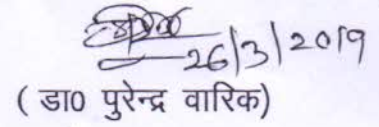 26/3/2019
( डा0 पुरेन्द्र वारिक)